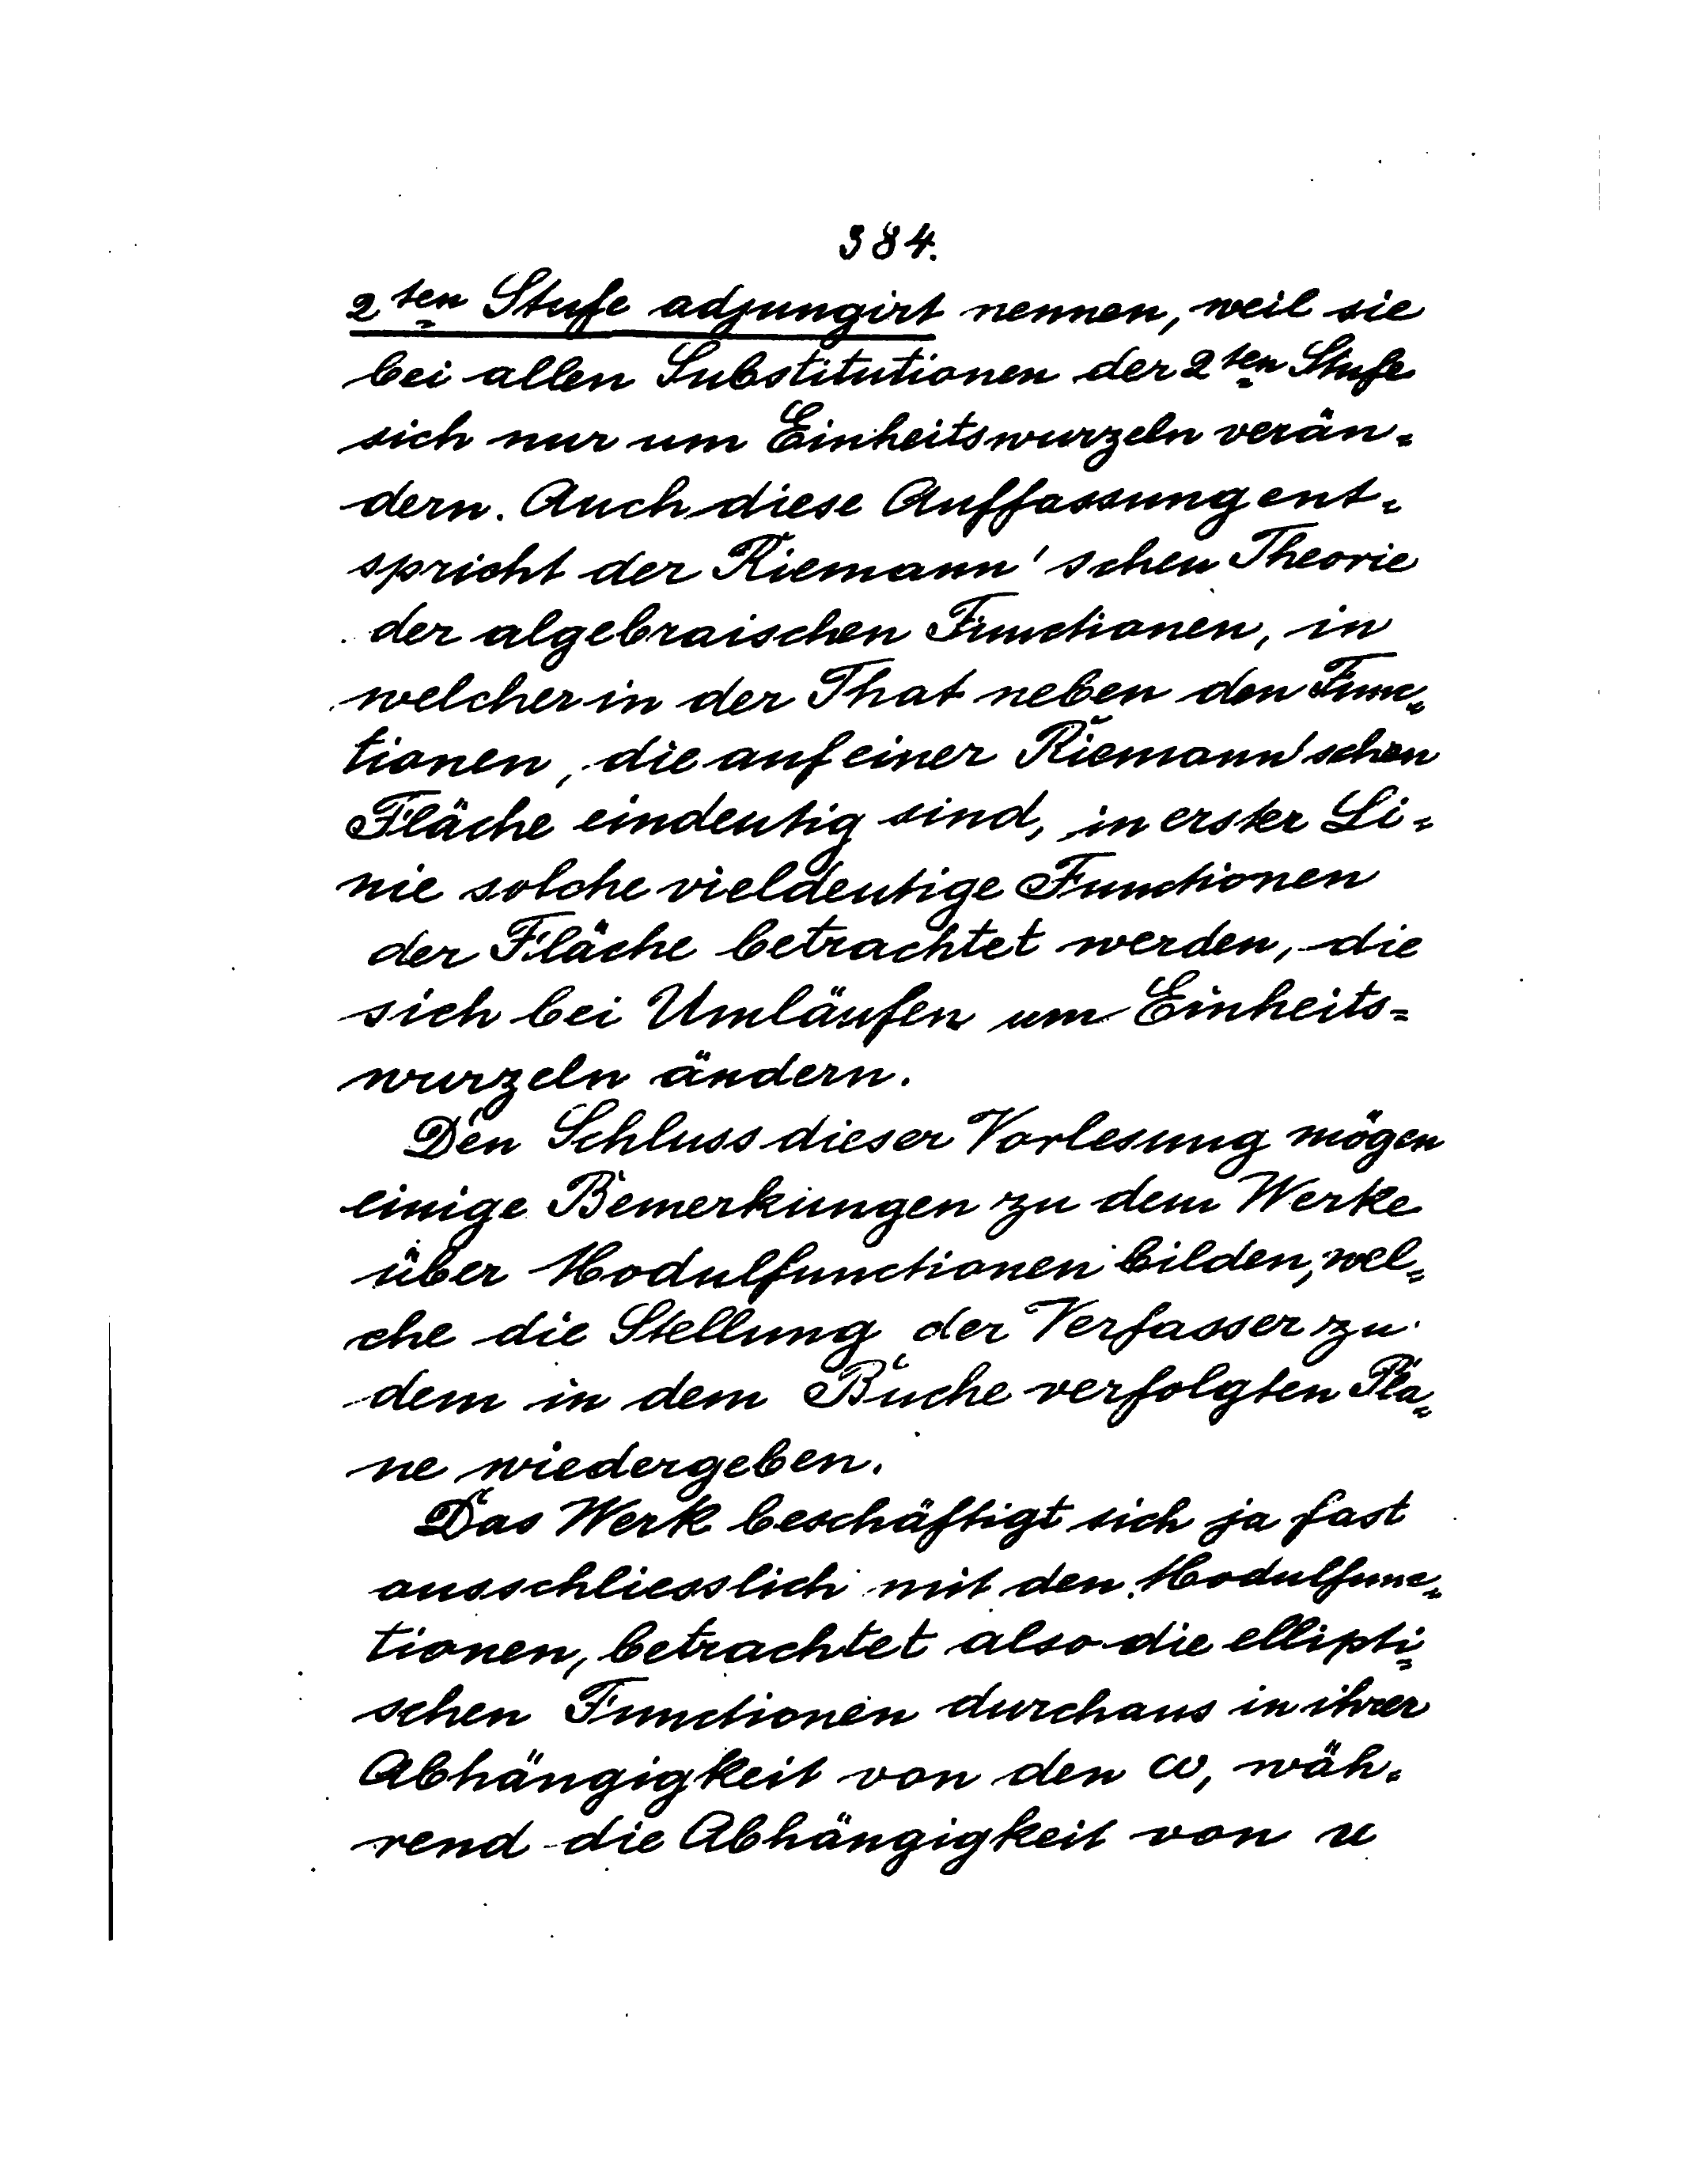 384.
2ten Stufe adjungirt nennen, weil sie
bei allen Substitutionen der 2ten Stufe
sich nur um Einheitswurzeln verän=
dern. Auch diese Auffassung ent=
spricht der Riemann'schen Theorie
der algebraischen Functionen, in
welcher in der That neben den Func=
tionen, die auf einer Riemann'schen
Fläche eindeutig sind, in erster Li=
nie solche vieldeutige Functionen
der Fläche betrachtet werden, die
sich bei Umläufen um Einheits=
wurzeln ändern.
Den Schluss dieser Vorlesung mögen
einige Bemerkungen zu dem Werke
über Modulfunctionen bilden, wel=
che die Stellung der Verfasser zu
dem in dem Buche verfolgten Pla=
ne wiedergeben.
Das Werk beschäftigt sich ja fast
ausschliesslich mit den Modulfunc=
tionen, betrachtet also die ellipti=
schen Functionen durchaus in ihrer
Abhängigkeit von den ω, wäh=
rend die Abhängigkeit von u